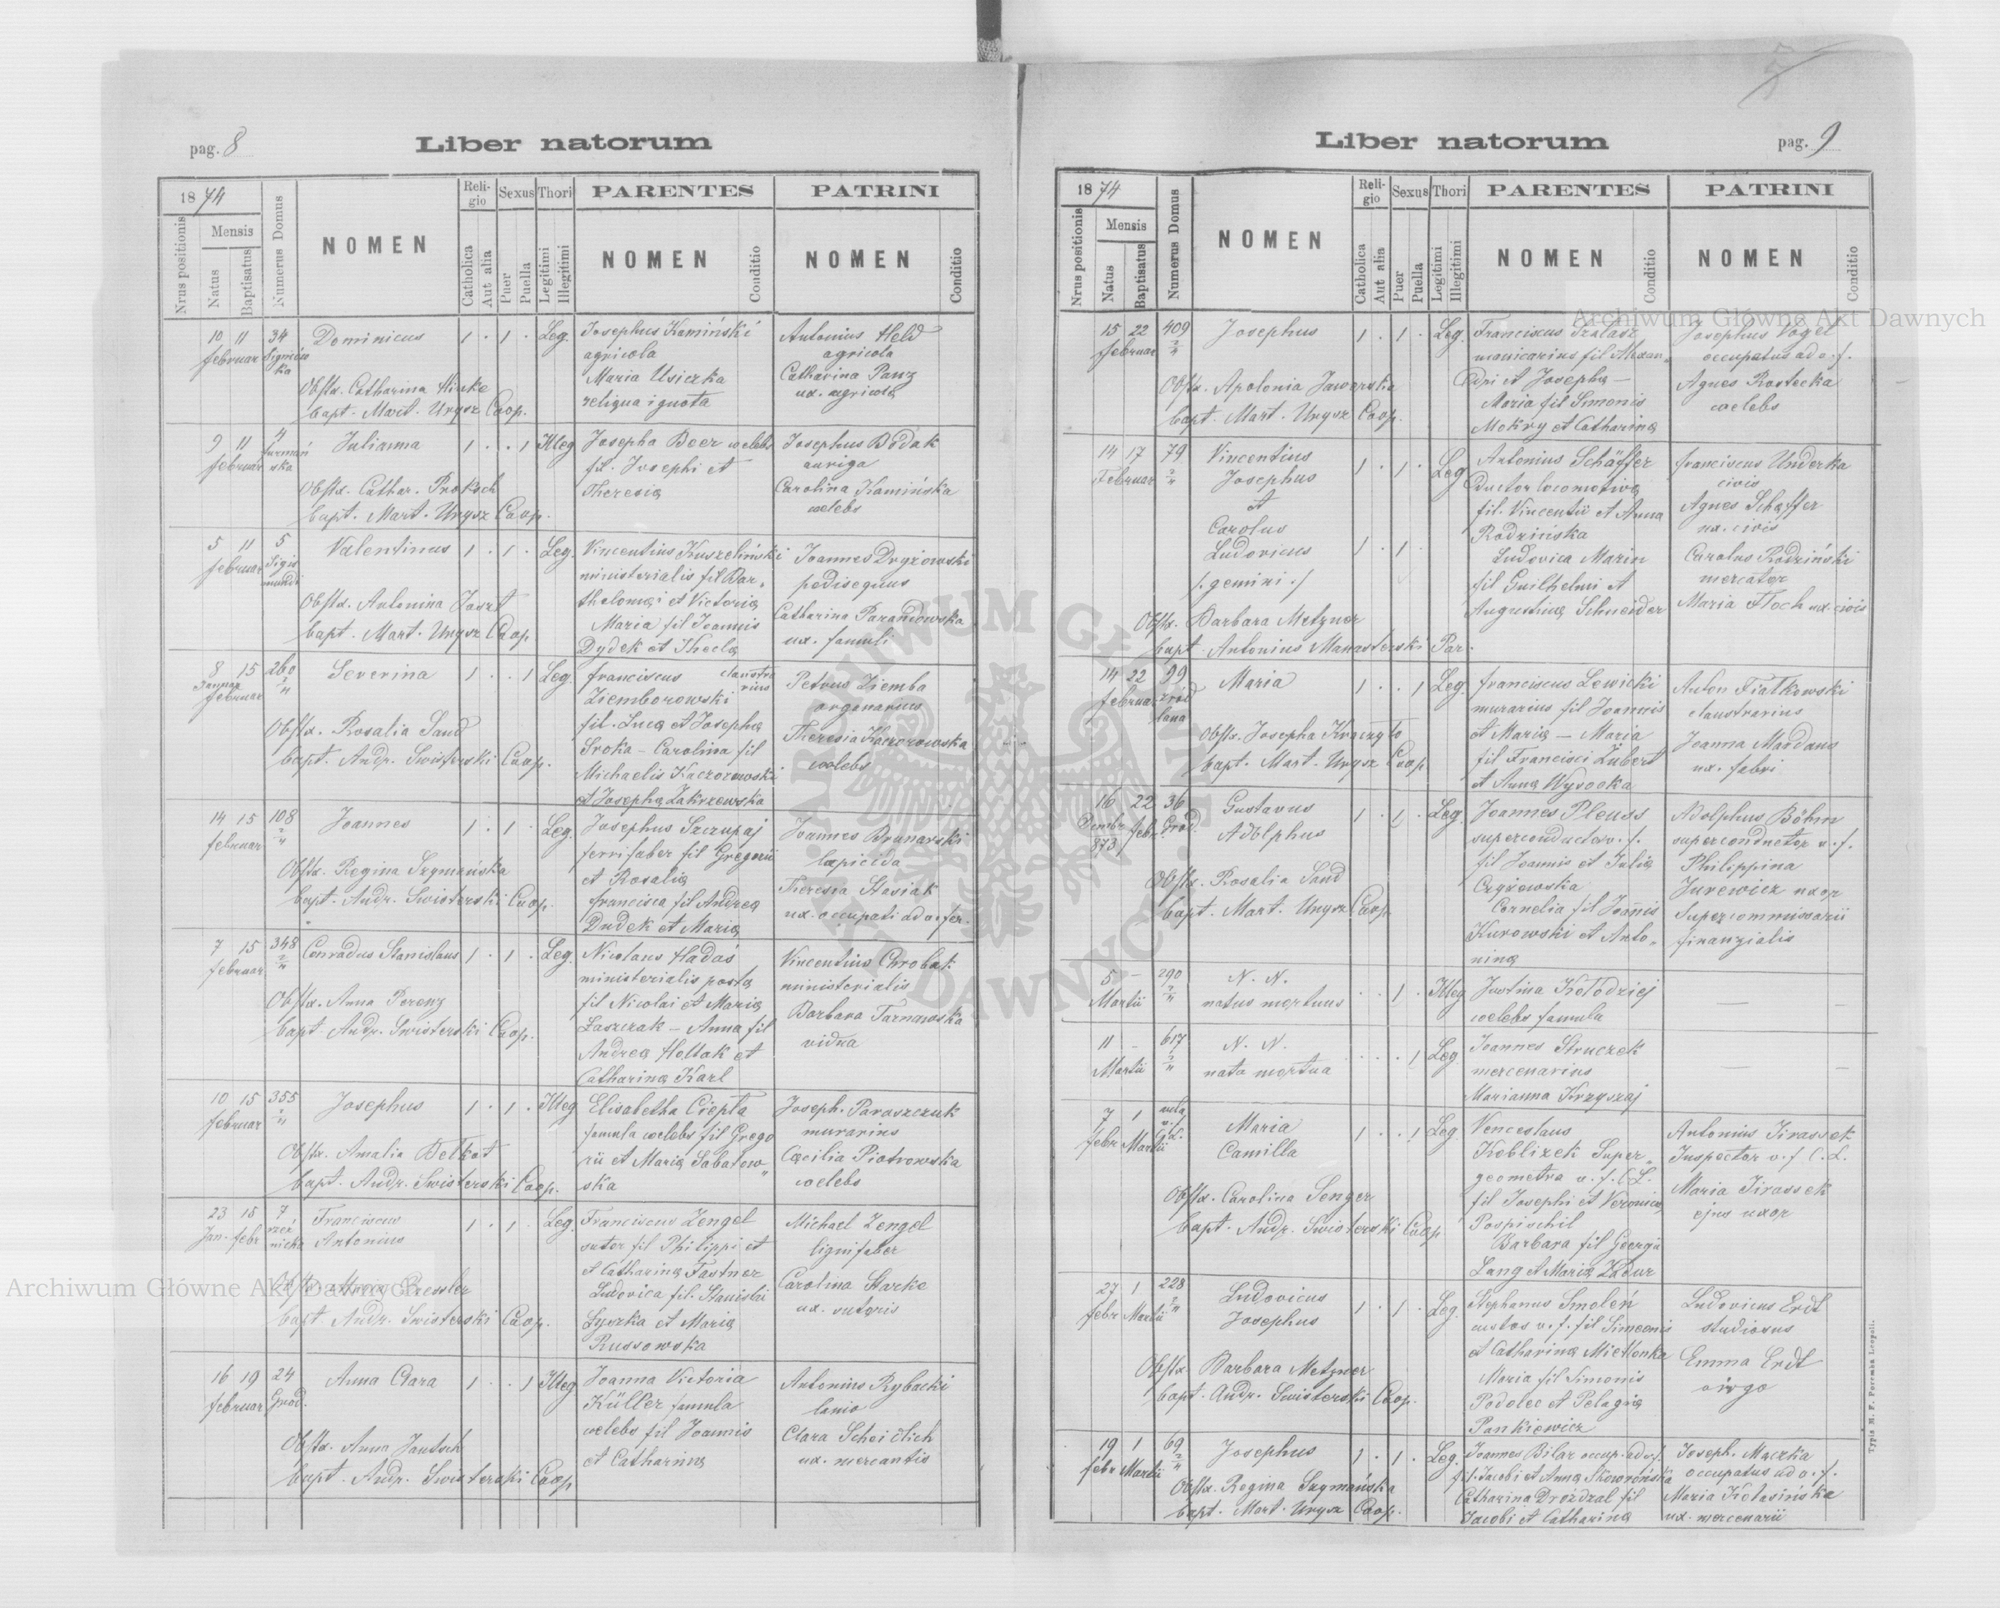 pag. 8
Liber natorum
1874
Nrus positionis
Mensis
Natus
Baptisatus
Numerus Domus
NOMEN
Religio
Catholica
Aut alia
Sexus
Puer
Puella
Thori
Legitimi
Illegitimi
PARENTES
NOMEN
Conditio
PATRINI
NOMEN
Conditio
10 11 34
februar
Dominicus
1 · 1 · Leg.
Obstx. Catharina Hinke
bapt. Mart. Ungsz Coop.
Josephus Kamiński
agricola
Maria Usiczka
reliqua ignota
Antonius Held
agricola
Catharina Panz
ux. agricolę
9 11 4
februar
Julianna
1 · · 1 Illeg
Obstx. Cathar. Proksch
bapt. Mart. Ungsz Coop.
Josepha Beer coelebs
fil. Josephi et
Theresię
Josephus Bodak
auriga
Carolina Kamińska
coelebs
5 11 5
februar
Sigis
mundi
Valentinus
1 · 1 · Leg.
Obstx. Antonina Joszt
bapt. Mart. Ungsz Coop.
Vincentius Kuszeliński
ministerialis fil Bar-
tholomęi et Victorię
Maria fil Joannis
Dydek et Theclę
Joannes Dryżowski
pedisequus
Catharina Parandowska
ux. famuli
8 15 260
2/4
Januar
februar
Severina
1 · · 1 Leg.
Obstx. Rosalia Sand
bapt. Andr. Swisterski Coop.
franciscus claustra
rius
Ziemborowski
fil. Lucę et Josephę
Sroka – Carolina fil
Michaelis Kaczorowski
et Josephę Zakrzewska
Petrus Ziemba
organarius
Theresia Kaczorowska
coelebs
14 15 108
2/4
februar
Joannes
1 · 1 · Leg.
Obstx. Regina Szymańska
bapt. Andr. Swisterski Coop.
Josephus Szczupaj
ferrifaber fil Gregorii
et Rosalię
francisca fil Andreę
Dudek et Marię
Joannes Brunarski
lapicida
Theresia Stasiak
ux. occupati ad o. fer.
7 15 348
2/4
februar
Conradus Stanislaus
1 · 1 · Leg.
Obstx. Anna Perenz
bapt. Andr. Swisterski Coop.
Nicolaus Hadaś
ministerialis postę
fil Nicolai et Marię
Laszczak – Anna fil
Andreę Hollak et
Catharinę Karl
Vincentius Chrobak
ministerialis
Barbara Tarnawska
vidua
10 15 355
2/4
februar
Josephus
1 · 1 · Illeg
Obstx. Amalia Belkot
bapt. Andr. Swisterski Coop.
Elisabetha Ciepła
famula coelebs fil Grego
rii et Marię Sobatow„
ska
Joseph. Paraszczuk
murarius
Cęcilia Piotrowska
coelebs
23 15 7
Jan. febr
Franciscus
Antonius
1 · 1 · Leg.
Obstx. Anna Gressler
bapt. Andr. Swisterski Coop.
Franciscus Zengel
sutor fil Philippi et
et Catharinę Fastner
Ludovica fil. Stanislai
Łyszka et Marię
Russowska
Michael Zengel
lignifaber
Carolina Starke
ux. sutoris
16 19 24
februar Grod.
Anna Clara
1 · · 1 Illeg
Obstx. Anna Jantsch
bapt. Andr. Swisterski Coop
Joanna Victoria
Küller famula
coelebs fil Joannis
et Catharinę
Antonius Rybacki
lanio
Clara Scheidlich
ux. mercantis
pag. 9
Liber natorum
1874
Nrus positionis
Mensis
Natus
Baptisatus
Numerus Domus
NOMEN
Religio
Catholica
Aut alia
Sexus
Puer
Puella
Thori
Legitimi
Illegitimi
PARENTES
NOMEN
Conditio
PATRINI
NOMEN
Conditio
15 22 409
2/4
februar
Josephus
1 · 1 · Leg.
Obstx. Apolonia Jaworska
bapt. Mart. Ungsz Coop.
Franciscus Szałasz
manicarius fil Alexan-
dri et Josephę –
Maria fil Simonis
Mokry et Catharinę
Josephus Vogel
occupatus ad o. f.
Agnes Rostecka
coelebs
14 17 79
2/4
Februar
Vincentius
Josephus
et
Carolus
Ludovicus
/. gemini ./
1 · 1 · Leg
1 · 1
Obstx. Barbara Metzner
bapt Antonius Manasterski Par.
Antonius Schäffer
ductor locomotivę
fil. Vincentii et Anna
Rodzińska
Ludovica Maria
fil Guilhelmi et
Augustinę Schneider
franciscus Underka
civis
Agnes Schäffer
ux. civis
Carolus Rodziński
mercator
Maria Floch ux. civis
14 22 99
februar
Maria
1 · · 1 Leg.
Obstx. Josepha Kraczyło
bapt. Mart. Ungsz Coop
franciscus Lewicki
murarius fil Joannis
et Marię – Maria
fil Francisci Zubert
et Annę Wysocka
Anton Fiałkowski
claustrarius
Joanna Mardaus
ux. fabri
16 22 36
Dembr. febr. Grod.
873
Gustavus
Adolphus
1 · 1 · Leg.
Obstx. Rosalia Sand
bapt. Mart. Ungsz Coop.
Joannes Pleuss
superconductor o. f.
fil Joannis et Julię
Czyżewska
Cornelia fil Joannis
Kurowski et Anto-
ninę
Adolphus Böhm
superconductor o. f.
Philippina
Jurewicz uxor
supercommissarii
finanzialis
5 – 290
2/4
Martii
N. N.
natus mortuus
· · 1 · Illeg
Justina Kołodziej
coelebs famula
— —
11 – 617
2/4
Martii
N. N.
nata mortua
· · · 1 Leg.
Joannes Struczek
mercenarius
Marianna Krzyszaj
— —
7 1
febr Martii
Maria
Camilla
1 · · 1 Leg.
Obstx. Carolina Senger
bapt. Andr. Swisterski Coop
Venceslaus
Koblizek Super-
geometra o. f. C. L.
fil Josephi et Veronicę
Pospischil
Barbara fil Georgii
Lang et Marię Zadur
Antonius Jirassek
Inspector o. f C. L.
Maria Jirassek
ejus uxor
27 1 228
2/4
febr Martii
Ludovicus
Josephus
1 · 1 · Leg.
Obstx. Barbara Metzner
bapt. Andr. Swisterski Coop.
Stephanus Smoleń
custos o. f. fil Simeonis
et Catharinę Mietlonka
Maria fil Simonis
Podolec et Pelagię
Pankiewicz
Ludovicus Erdt
studiosus
Emma Erdt
virgo
19 1 69
2/4
febr Martii
Josephus
1 · 1 · Leg.
Obstx. Regina Szymańska
bapt. Mart. Ungsz Coop.
Joannes Bilar occup. ad o f.
fil. Jacobi et Annę Skowrońska
Catharina Drożdzal fil
Jacobi et Catharinę
Joseph. Maczka
occupatus ad o. f.
Maria Kolasińska
ux. mercenarii
Typis M. F. Poremba Leopoli.
Archiwum Główne Akt Dawnych
Archiwum Główne Akt Dawnych
ARCHIWUM GŁÓWNE AKT DAWNYCH